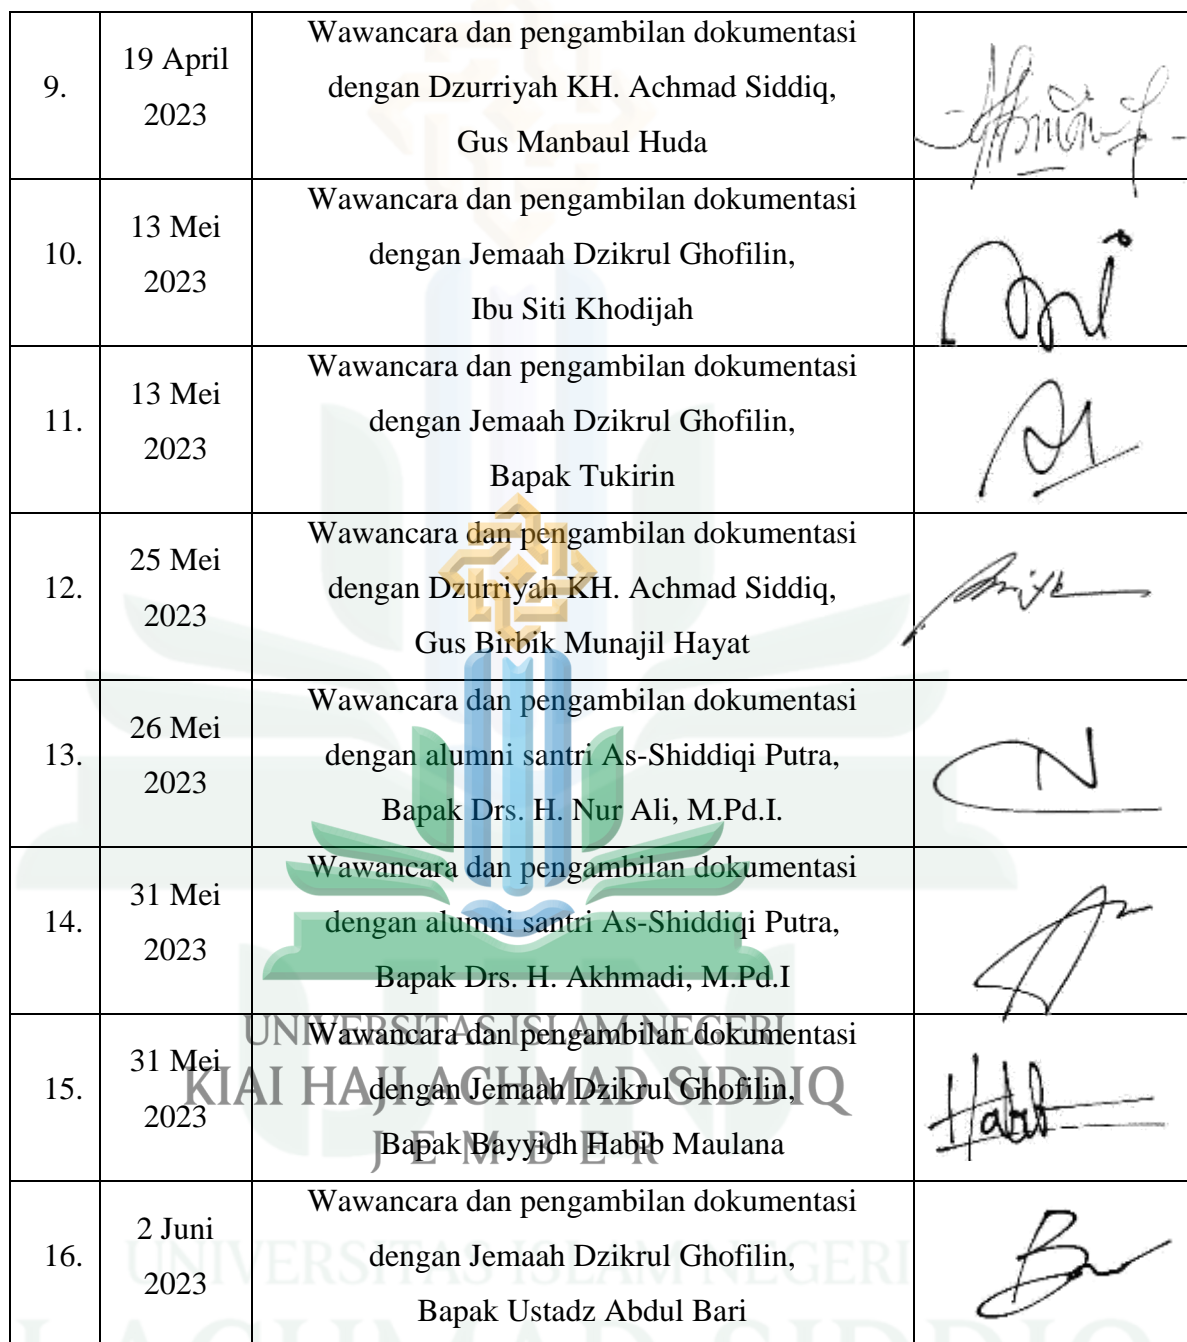 9.
19 April
2023
Wawancara dan pengambilan dokumentasi
dengan Dzurriyah KH. Achmad Siddiq,
Gus Manbaul Huda
10.
13 Mei
2023
Wawancara dan pengambilan dokumentasi
dengan Jemaah Dzikrul Ghofilin,
Ibu Siti Khodijah
11.
13 Mei
2023
Wawancara dan pengambilan dokumentasi
dengan Jemaah Dzikrul Ghofilin,
Bapak Tukirin
12.
25 Mei
2023
Wawancara dan pengambilan dokumentasi
dengan Dzurriyah KH. Achmad Siddiq,
Gus Birbik Munajil Hayat
13.
26 Mei
2023
Wawancara dan pengambilan dokumentasi
dengan alumni santri As-Shiddiqi Putra,
Bapak Drs. H. Nur Ali, M.Pd.I.
14.
31 Mei
2023
Wawancara dan pengambilan dokumentasi
dengan alumni santri As-Shiddiqi Putra,
Bapak Drs. H. Akhmadi, M.Pd.I
15.
31 Mei
2023
Wawancara dan pengambilan dokumentasi
dengan Jemaah Dzikrul Ghofilin,
Bapak Bayyidh Habib Maulana
Habib
16.
2 Juni
2023
Wawancara dan pengambilan dokumentasi
dengan Jemaah Dzikrul Ghofilin,
Bapak Ustadz Abdul Bari
UNIVERSITAS ISLAM NEGERI
KIAI HAJI ACHMAD SIDDIQ
JEMBER
UNIVERSITAS ISLAM NEGERI
ACHMAD SIDDIQ